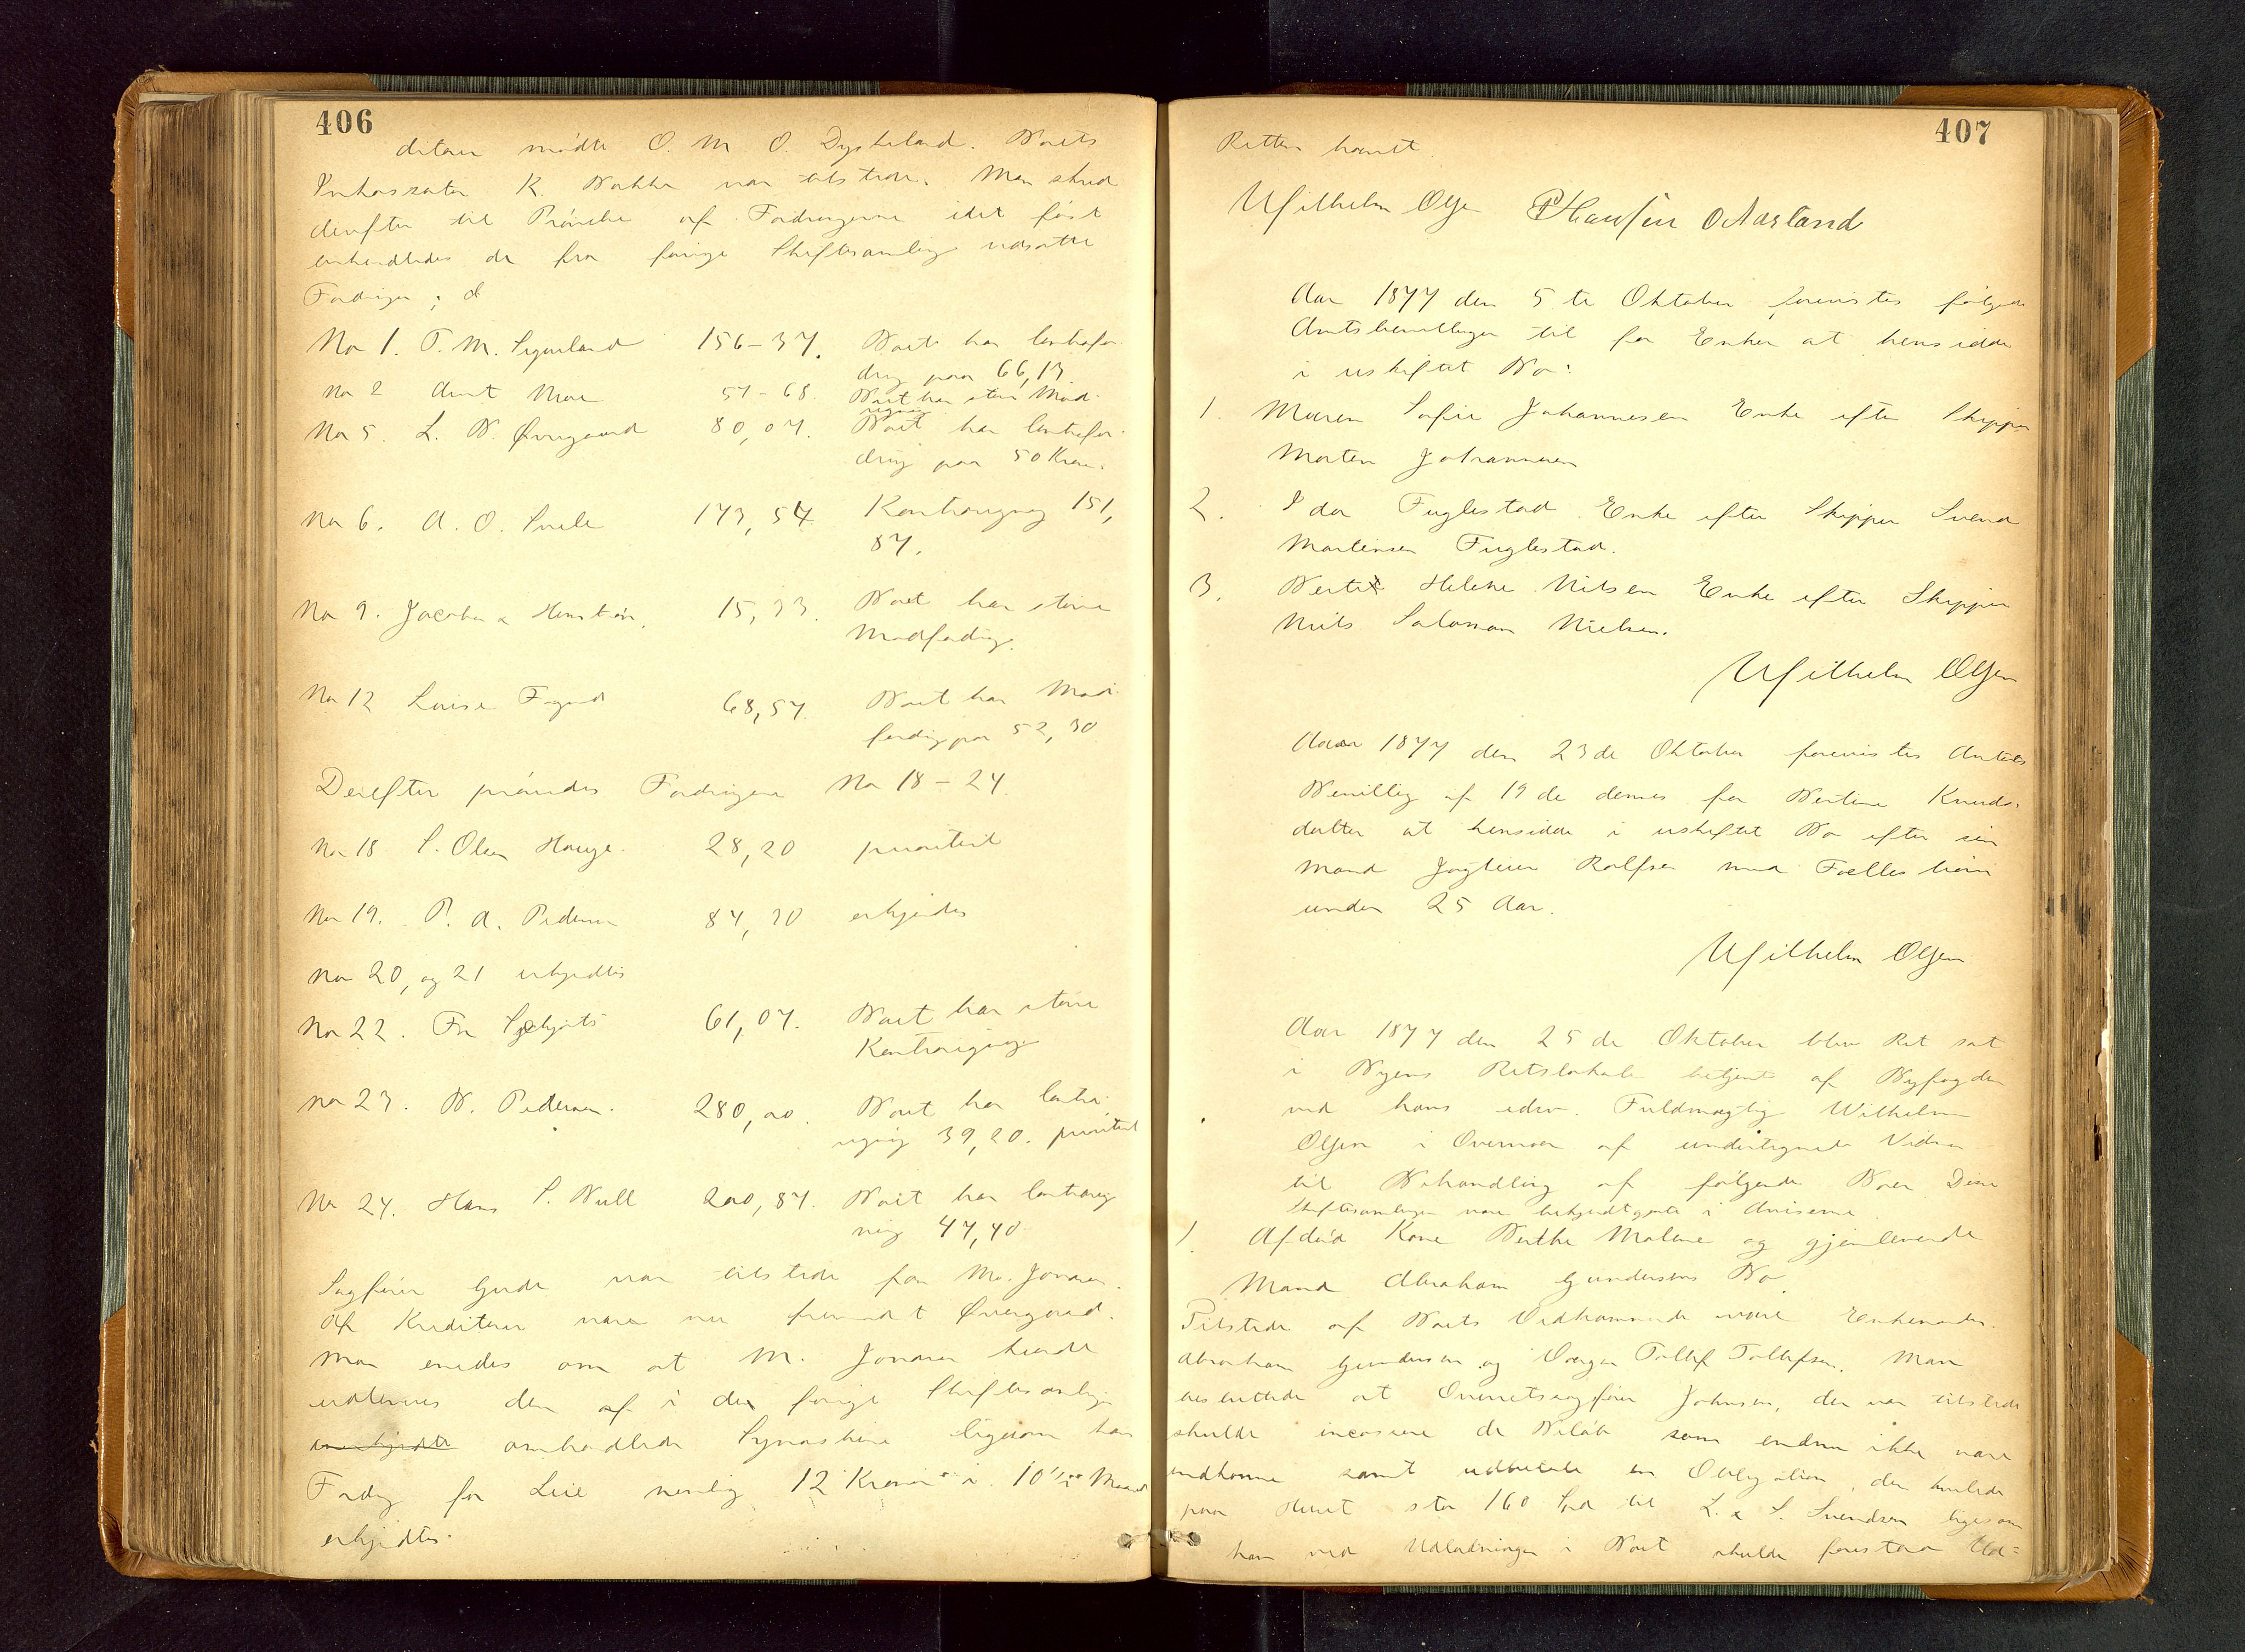 406
ditorer mødte O. M. O. Dyskeland. Boets
Inkassator K. Bakke var tilstede. Man skred
derefter til Prøvelse af Fordringerne idet først
behandledes de fra forrige Skiftesamling udsatte
Fordringer;
No 1. T. M. Sigveland 156-37. Boet har kontrafor-
dring paa 66,13
No 2 Aunt Moe 57-68. Boet har større Mod-
regning
No 5. L. B. Øvregaard 80,07. Boet har kontrafor-
dring paa 50 Kroner.
No 6. A. O. Svele 173,54 Kontraregning 151,
87.
No 9. Jacobsen & Henrikson 15,33. Boet har større
Modfordring.
No 12 Louise Fryend 68,57 Boet har Mod-
fordring paa 52,30
Derefter prøvedes Fordringerne No 18-24.
No 18 S. Olsen Hauge. 28,20 prioritert
No 19. P. A. Pedersen 84,30 erkjendes
No 20, og 21 erkjendtes
No 22. Fru Schjøts 61,07. Boet har større
Kontraregning
No 23. B. Pedersen. 280,00. Boet har kontra-
regning 39,20. prioritert
No 24. Hans S. Bull 200,87. Boet har kontrareg
ning 47,40
Sagfører Gjerde var tilstede for M. Jonasen.
Af Kreditorer vare nu fremmødt Øvregaard.
Man enedes om at M. Jonasen burde
udleveres den af i den forrige Skiftesamling
omhandlede Symaskine ligesom hans
Fordring for Leie nemlig 12 Kroner i 10 1/2 Maaned
erkjendtes.
407
Retten hævet.
Wilhelm Olsen P Hansen O Aarland
Aar 1877 den 5te Oktober forevistes følgende
Amtsbevillinger til for Enker at hensidde
i uskiftet Bo:
1. Maren Sofie Johannesen Enke efter Skipper
Morten Johannesen
2. Ida Fuglestad Enke efter Skipper Svend
Martinsen Fuglestad.
3. Berte Helene Nilsen Enke efter Skipper
Niels Salomon Nielsen.
Wilhelm Olsen
Aar 1877 den 23de Oktober forevistes Amtets
Bevilling af 19de dennes for Bertine Knuds-
datter at hensidde i uskiftet Bo efter sin
Mand Jøgteier Rolfsen med Fælles børn
under 25 Aar.
Wilhelm Olsen
Aar 1877 den 25de Oktober blev Ret sat
i Byens Retslokale betjent af Byfogden
ved hans edsv. Fuldmægtig Wilhelm
Olsen i Overvær af undertegnede Vidner
til Behandling af følgende Boer Disse
Skiftesamlinger vare bekjendtgjorte i Aviserne
1. Afdød Kone Berthe Malene og gjenlevende
Mand Abraham Gundersens Bo
Tilstede af Boets Vedkommende vare Enkemanden
Abraham Gundersen og Værgen Tollef Tollefsen. Man
besluttede at Overretssagfører Johnsen, der var tilstede
skulde incassere de Beløb som endnu ikke vare
indkomne samt udbetale en Obligation, der hvilede
paa Huset stor 160 Spd til L. & S. Svendsen ligesom
han ved Udlodningen i Boet skulde forestaa Ud=